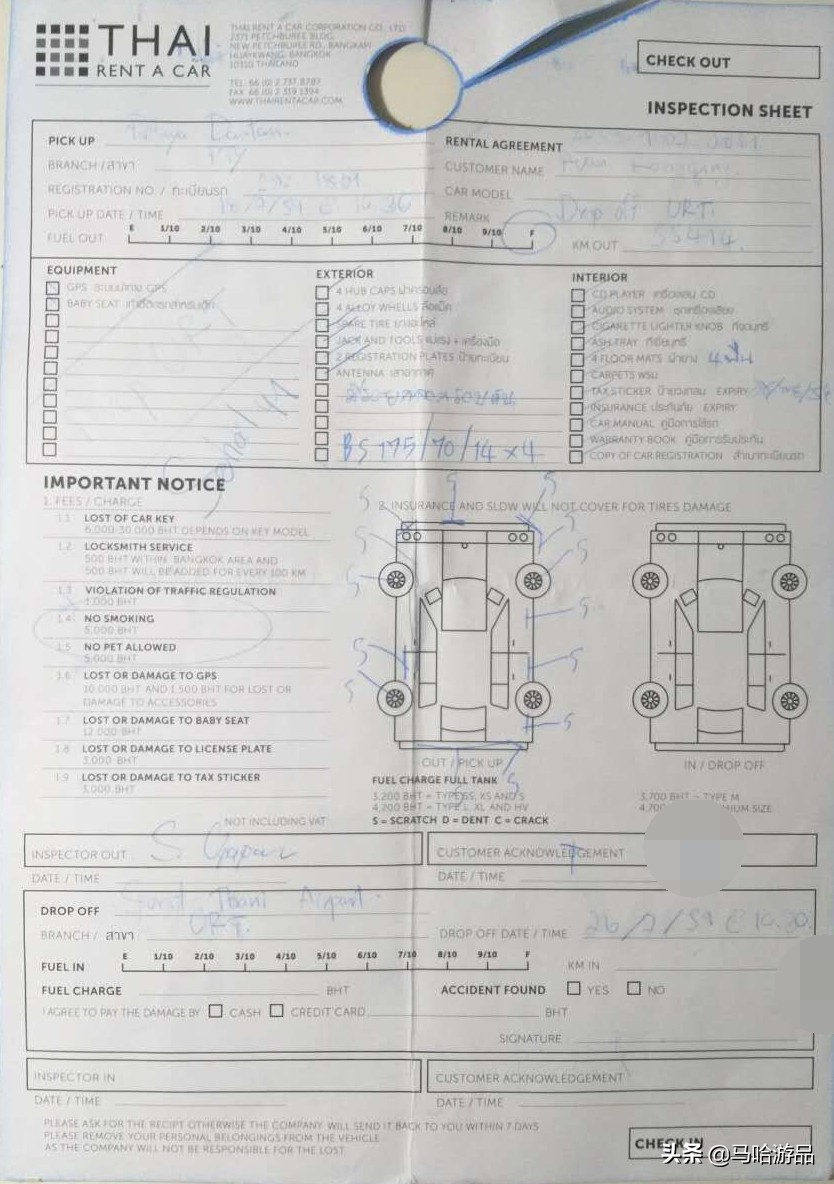 THAI
RENT A CAR
THAI RENT A CAR CORPORATION CO., LTD.
2371 PETCHBUREE BLDG.
NEW PETCHBUREE RD., BANGKAPI
HUAYKWANG, BANGKOK
10310 THAILAND
TEL. 66 (0) 2 737 8787
FAX 66 (0) 2 319 1394
WWW.THAIRENTACAR.COM
CHECK OUT
INSPECTION SHEET
PICK UP
RENTAL AGREEMENT
BRANCH / สาขา
CUSTOMER NAME
REGISTRATION NO. / ทะเบียนรถ
CAR MODEL
PICK UP DATE / TIME
REMARK Drop off URT.
FUEL OUT E 1/10 2/10 3/10 4/10 5/10 6/10 7/10 8/10 9/10 F
KM OUT 55414.
EQUIPMENT
GPS ระบบนำทาง GPS
BABY SEAT
EXTERIOR
4 HUB CAPS ฝาครอบล้อ
4 ALLOY WHELLS ล้อแม็ค
SPARE TIRE ยางอะไหล่
JACK AND TOOLS แม่แรง + เครื่องมือ
2 REGISTRATION PLATES ป้ายทะเบียน
ANTENNA เสาอากาศ
BS 175/70/14 x 4
INTERIOR
CD PLAYER เครื่องเล่น CD
AUDIO SYSTEM ชุดเครื่องเสียง
CIGARETTE LIGHTER KNOB ที่จุดบุหรี่
ASH TRAY ที่เขี่ยบุหรี่
4 FLOOR MATS ผ้ายาง 4 ผืน
CARPETS พรม
TAX STICKER ป้ายวงกลม EXPIRY
INSURANCE ประกันภัย EXPIRY
CAR MANUAL คู่มือการใช้รถ
WARRANTY BOOK คู่มือการรับประกัน
COPY OF CAR REGISTRATION สำเนาทะเบียนรถ
IMPORTANT NOTICE
1. FEES / CHARGE
1.1 LOST OF CAR KEY
6,000-30,000 BHT DEPENDS ON KEY MODEL
1.2 LOCKSMITH SERVICE
500 BHT WITHIN BANGKOK AREA AND
500 BHT WILL BE ADDED FOR EVERY 100 KM
1.3 VIOLATION OF TRAFFIC REGULATION
1,000 BHT
1.4 NO SMOKING
5,000 BHT
1.5 NO PET ALLOWED
5,000 BHT
1.6 LOST OR DAMAGE TO GPS
10,000 BHT AND 1,500 BHT FOR LOST OR
DAMAGE TO ACCESSORIES
1.7 LOST OR DAMAGE TO BABY SEAT
12,000 BHT
1.8 LOST OR DAMAGE TO LICENSE PLATE
3,000 BHT
1.9 LOST OR DAMAGE TO TAX STICKER
3,000 BHT
NOT INCLUDING VAT
2. INSURANCE AND SLDW WILL NOT COVER FOR TIRES DAMAGE
S S S S S S S S S S S S
OUT / PICK UP
IN / DROP OFF
FUEL CHARGE FULL TANK
3,200 BHT = TYPE SS, XS AND S
4,200 BHT = TYPE L, XL AND HV
3,700 BHT = TYPE M
S = SCRATCH D = DENT C = CRACK
INSPECTOR OUT
CUSTOMER ACKNOWLEDGEMENT
DATE / TIME
DATE / TIME
DROP OFF Surat Thani Airport.
BRANCH / สาขา URT.
DROP OFF DATE / TIME
FUEL IN E 1/10 2/10 3/10 4/10 5/10 6/10 7/10 8/10 9/10 F
KM IN
FUEL CHARGE BHT
ACCIDENT FOUND YES NO
I AGREE TO PAY THE DAMAGE BY CASH CREDIT CARD BHT
SIGNATURE
INSPECTOR IN
CUSTOMER ACKNOWLEDGEMENT
DATE / TIME
DATE / TIME
PLEASE ASK FOR THE RECIPT OTHERWISE THE COMPANY WILL SEND IT BACK TO YOU WITHIN 7 DAYS
PLEASE REMOVE YOUR PERSONAL BELONGINGS FROM THE VEHICLE
AS THE COMPANY WILL NOT BE RESPONSIBLE FOR THE LOST.
CHECK IN
头条 @马哈游品